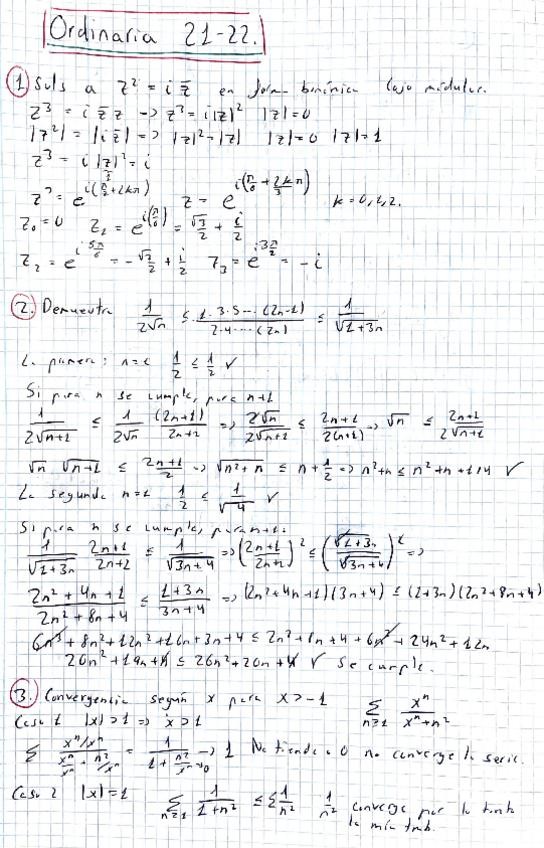 Ordinaria 21-22.
① Sols a z² = i z̄ en forma binómica bajo módulos.
z³ = i z̄ z → z³ = i|z|² |z|=0
|z²| = |i z̄| => |z|² = |z| |z|=0 |z|=1
z³ = i |z|² = i
z³ = e^{i(π/2+2kπ)} z = e^{i(π/6+2kπ/3)} k=0,1,2.
z₀=0 z₁ = e^{i(π/6)} = √3/2 + i/2
z₂ = e^{i5π/6} = -√3/2 + i/2 z₃ = e^{i3π/2} = -i
②. Demuestra 1/(2√n) ≤ (1·3·5···(2n-1))/(2·4····(2n)) ≤ 1/√(1+3n)
La primera: n=1 1/2 ≤ 1/2 ✓
Si para n se cumple, para n+1
1/(2√(n+1)) ≤ 1/(2√n) (2n+1)/(2n+2) => 2√n/(2√(n+1)) ≤ (2n+1)/(2(n+1)) → √n ≤ (2n+1)/(2√(n+1))
√n √(n+1) ≤ (2n+1)/2 => √(n²+n) ≤ n+1/2 => n²+n ≤ n²+n+1/4 ✓
La segunda n=1 1/2 ≤ 1/√4 ✓
Si para n se cumple, para n+1:
1/√(1+3n) (2n+1)/(2n+2) ≤ 1/√(3n+4) => ((2n+1)/(2n+2))² ≤ (√(1+3n)/√(3n+4))² =>
(2n²+4n+1)/(2n²+8n+4) ≤ (1+3n)/(3n+4) => (2n²+4n+1)(3n+4) ≤ (1+3n)(2n²+8n+4)
6n³+8n²+12n²+16n+3n+4 ≤ 2n²+8n+4+6n³+24n²+12n
20n²+19n+4 ≤ 26n²+20n+4 ✓ Se cumple.
③. Convergencia según x para x>-1 Σ_{n≥1} xⁿ/(xⁿ+n²)
Caso 1 |x|>1 => x>1
Σ (xⁿ/xⁿ)/(xⁿ/xⁿ + n²/xⁿ) = 1/(1+n²/xⁿ→0) → 1 No tiende a 0 no converge la serie.
Caso 2 |x|=1 Σ_{n≥1} 1/(1+n²) ≤ Σ 1/n² 1/n² converge por lo tanto
la mía tmb.